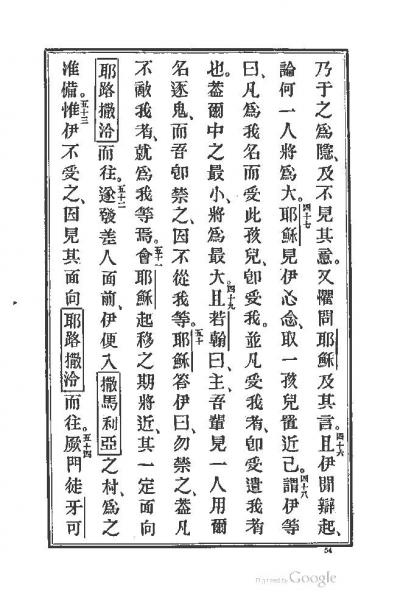 乃于之爲隱、及不見其意。又懼問耶穌及其言。四十六且伊閒辯起、
論何一人將爲大。四十七耶穌見伊心念、取一孩兒置近己。四十八謂伊等
曰、凡爲我名而受此孩兒、卽受我。並凡受我者、卽受遣我者
也。葢爾中之最小、將爲最大。四十九且若翰曰、主、吾輩見一人用爾
名逐鬼、而吾卽禁之、因不從我等。五十耶穌答伊曰、勿禁之、葢凡
不敵我者、就爲我等焉。五十一會耶穌起移之期將近、其一定面向
耶路撒洽而往。五十二遂發差人面前、伊便入撒馬利亞之村、爲之
准備。五十三惟伊不受之、因見其面向耶路撒洽而往。五十四厥門徒牙可
54
Digitized by Google